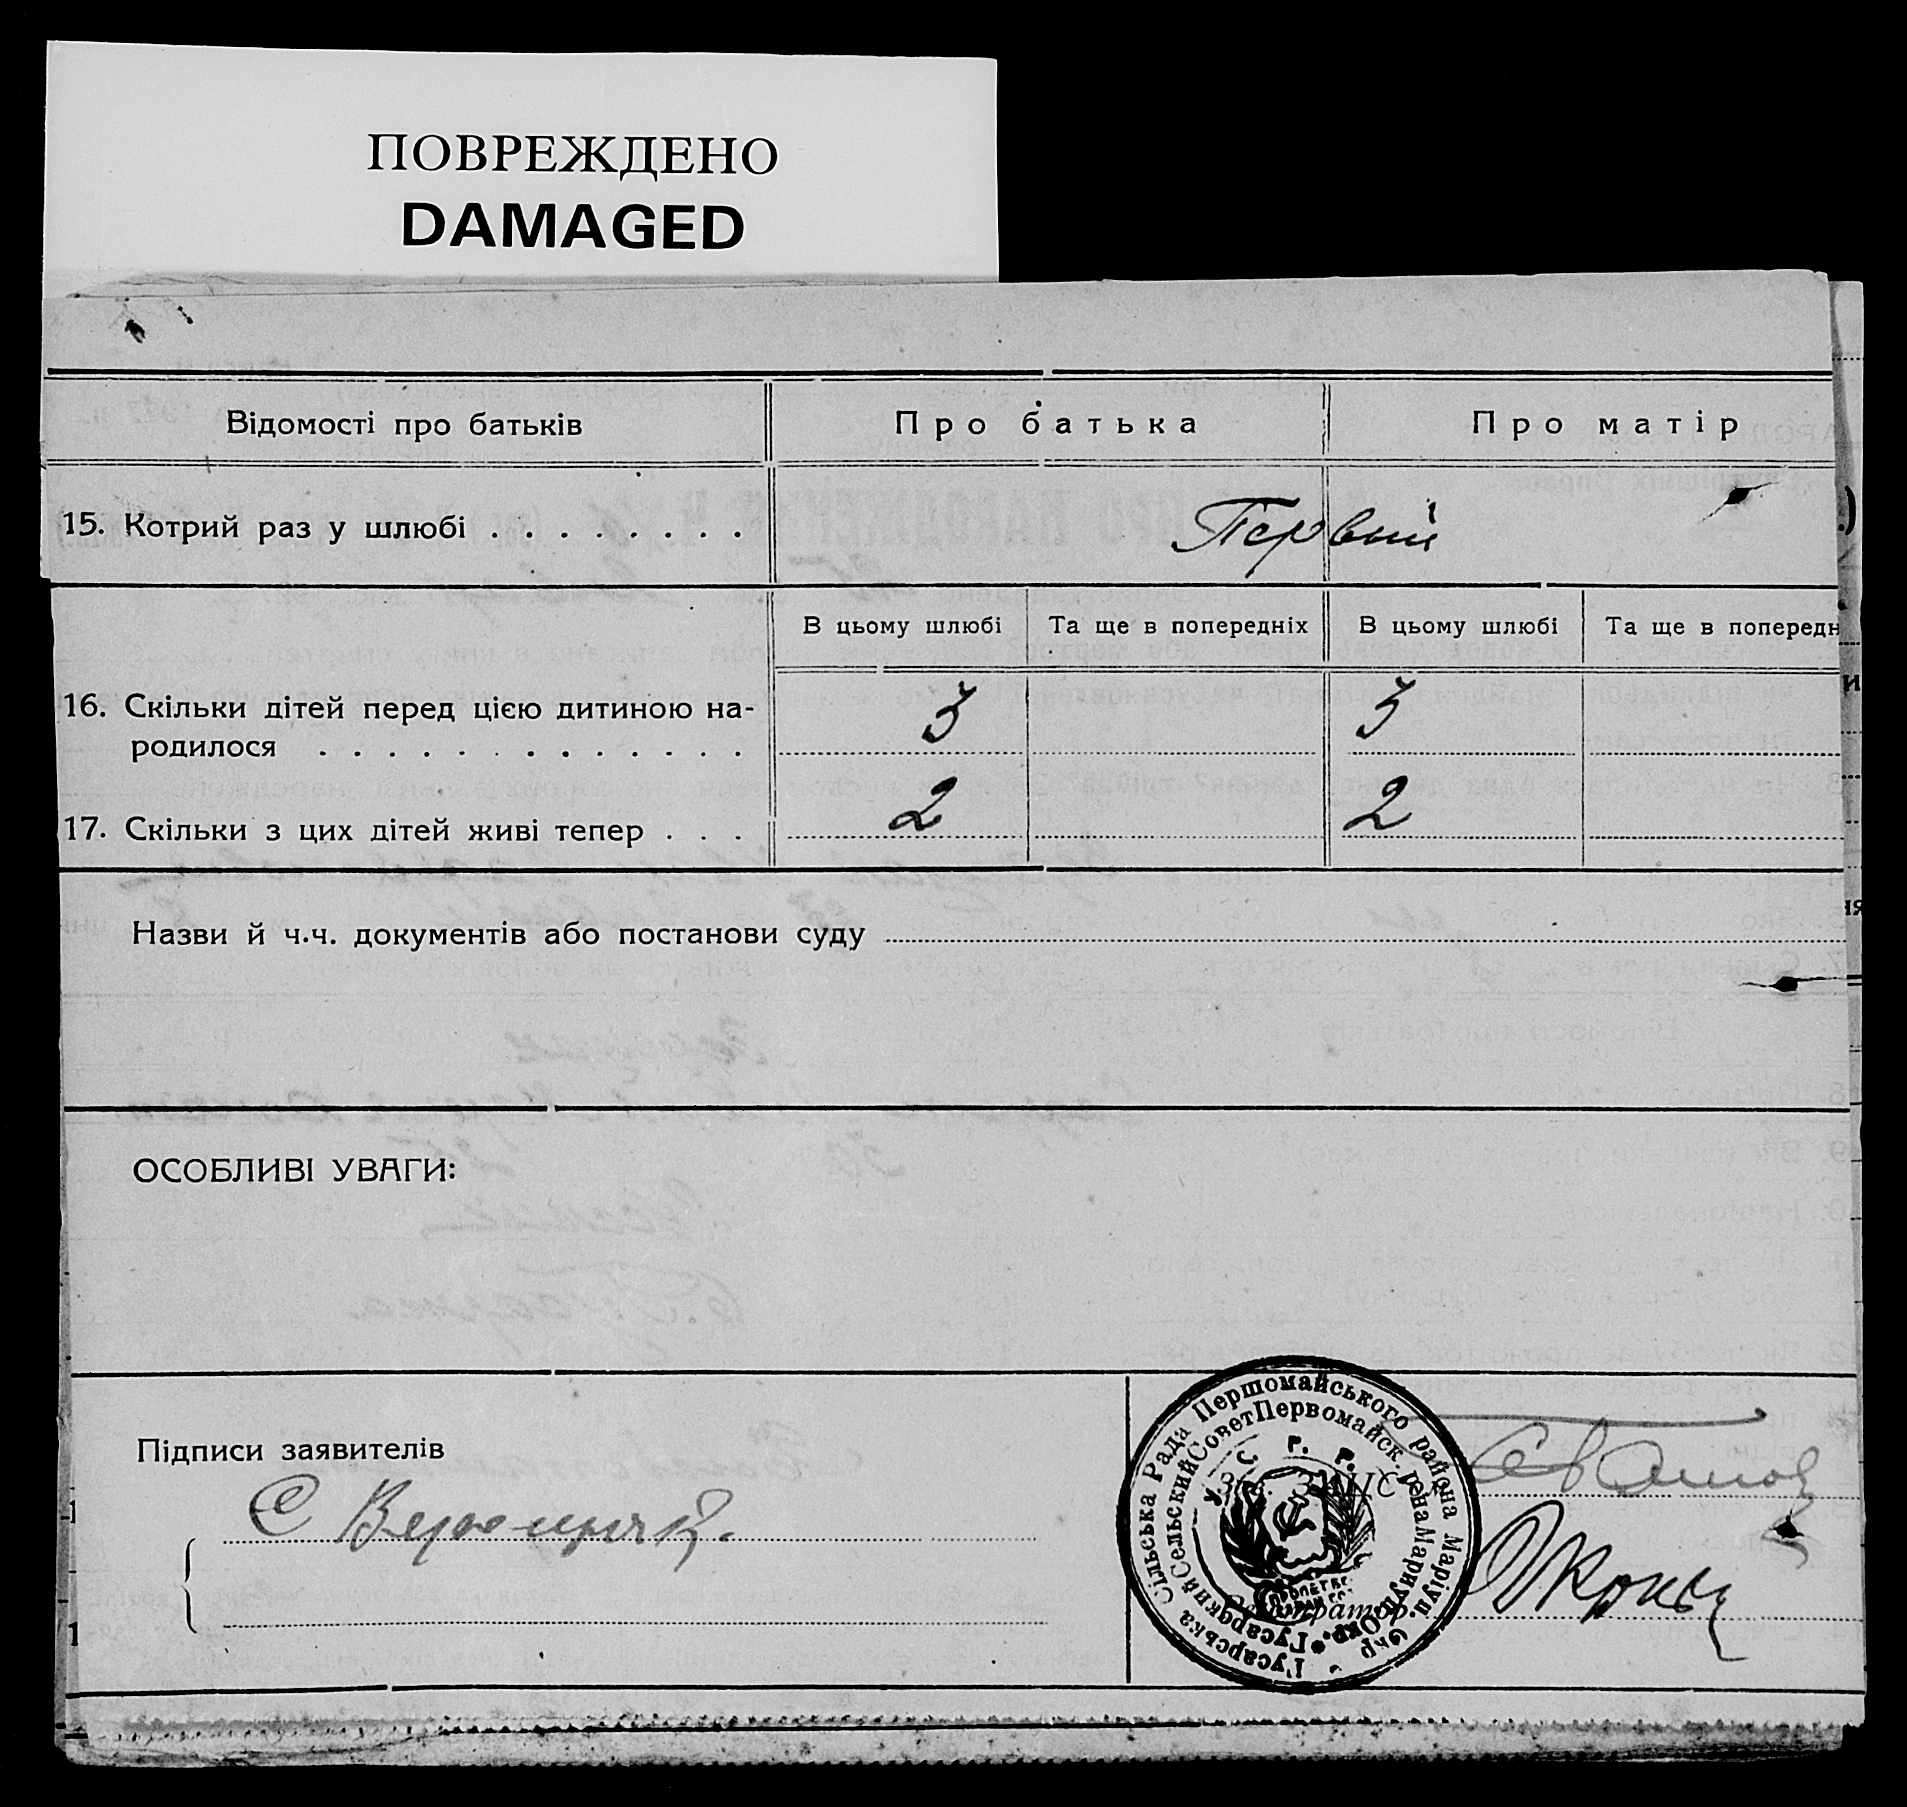 ПОВРЕЖДЕНО
DAMAGED
Відомості про батьків
Про батька
Про матір
15. Котрий раз у шлюбі . . . . . . . .
Первый
В цьому шлюбі
Та ще в попередніх
В цьому шлюбі
Та ще в попередн
16. Скільки дітей перед цією дитиною на-
родилося . . . . . . . . . . . . .
3
3
17. Скільки з цих дітей живі тепер . . .
2
2
Назви й ч.ч. документів або постанови суду
ОСОБЛИВІ УВАГИ:
Підписи заявителів
Зав. ЗАЦС
Реєстратор
Гусарська Сільська Рада Першомайського района Маріуп. Окр
Гусарский Сельский Совет Первомайск. рена Мариуп. Окр.
У. С. Р. Р.